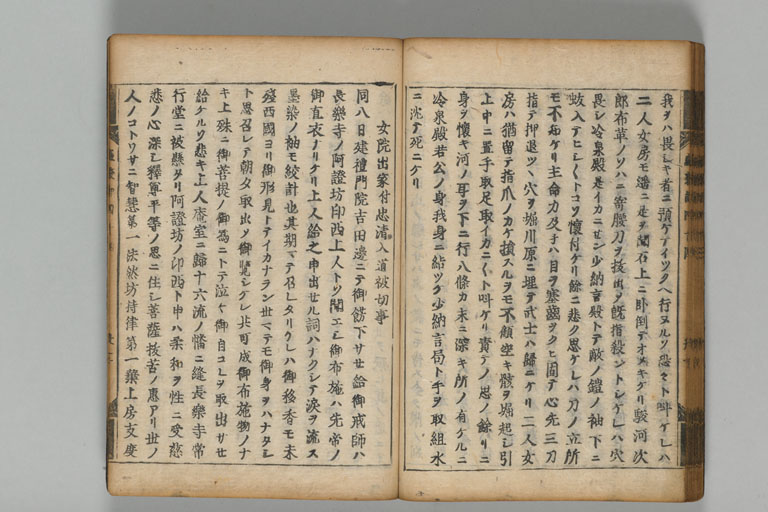 我ヲハ畏シキ者ニ預ケテイツクヘ行ヌルソ恐シヤト叫ケレハ
二人女房モ ニ走ヲ聞石上ニ臥倒テオメキケリ駿河次
郎布革ノソハニ寄腰刀ヲ抜出ヲ既指殺シトシケレハ穴
畏シ冷泉殿是イカニセン少納言殿トテ敵ノ鎧ノ袖下ニ
蚑入テヒシ〱トコソ懐付ケリ餘ニ悲ク思ケレハ刀ノ立所
モ不知ケリ主命力及ネハ目ヲ塞齒ツクヒ固テ心先三刀
指テ押退ツヽ穴ヲ堀川原ニ埋テ武士ハ歸ニケリ二人女
房ハ猶留テ指爪ノカケ損スルヲモ不顧空キ骸ヲ堀起シ引
上中ニ置手取足取イカニ〱ト叫ケリ責テノ思ノ餘リニ
身ヲ懐キ河ノ耳ヲ下ニ行八條カ末ニ深キ所ノ有ケルニ
冷泉殿若公ノ身我身ニ結ツク少納言局ト手ヲ取組水
ニ沈テ死ニケリ
女院出家付忠清入道被切事
同八日建禮門院吉田邊ニテ御餝下サセ給御戒師ハ
長樂寺ノ阿證坊印西上人トソ聞エシ御布施ハ先帝ノ
御直衣ナリケリ上人給之申出セル詞ハナクシテ涙ヲ流ス
墨染ノ袖モ絞計也其期マテ召レタリケレハ御移香モ未
殘西國ヨリ御形見トテイカナラン世マテモ御身ヲハナタシ
ト思召シテ朝夕取出ツ御覧シケレ共可成御布施物ノナ
キ上殊ニ御菩提ノ御爲ニトテ泣々御自コレヲ取出サセ
給ケルソ悲キ上人庵室ニ歸十六流ノ幡ニ縫長樂寺常
行堂ニ被懸タリ阿證坊ノ印西ト申ハ柔和ヲ性ニ受慈
悲ノ心深シ釋尊平等ノ思ニ住シ菩薩抜苦ノ應アリ世ノ
人ノコトワサニ智慧第一法然坊持律第一葉上房支度